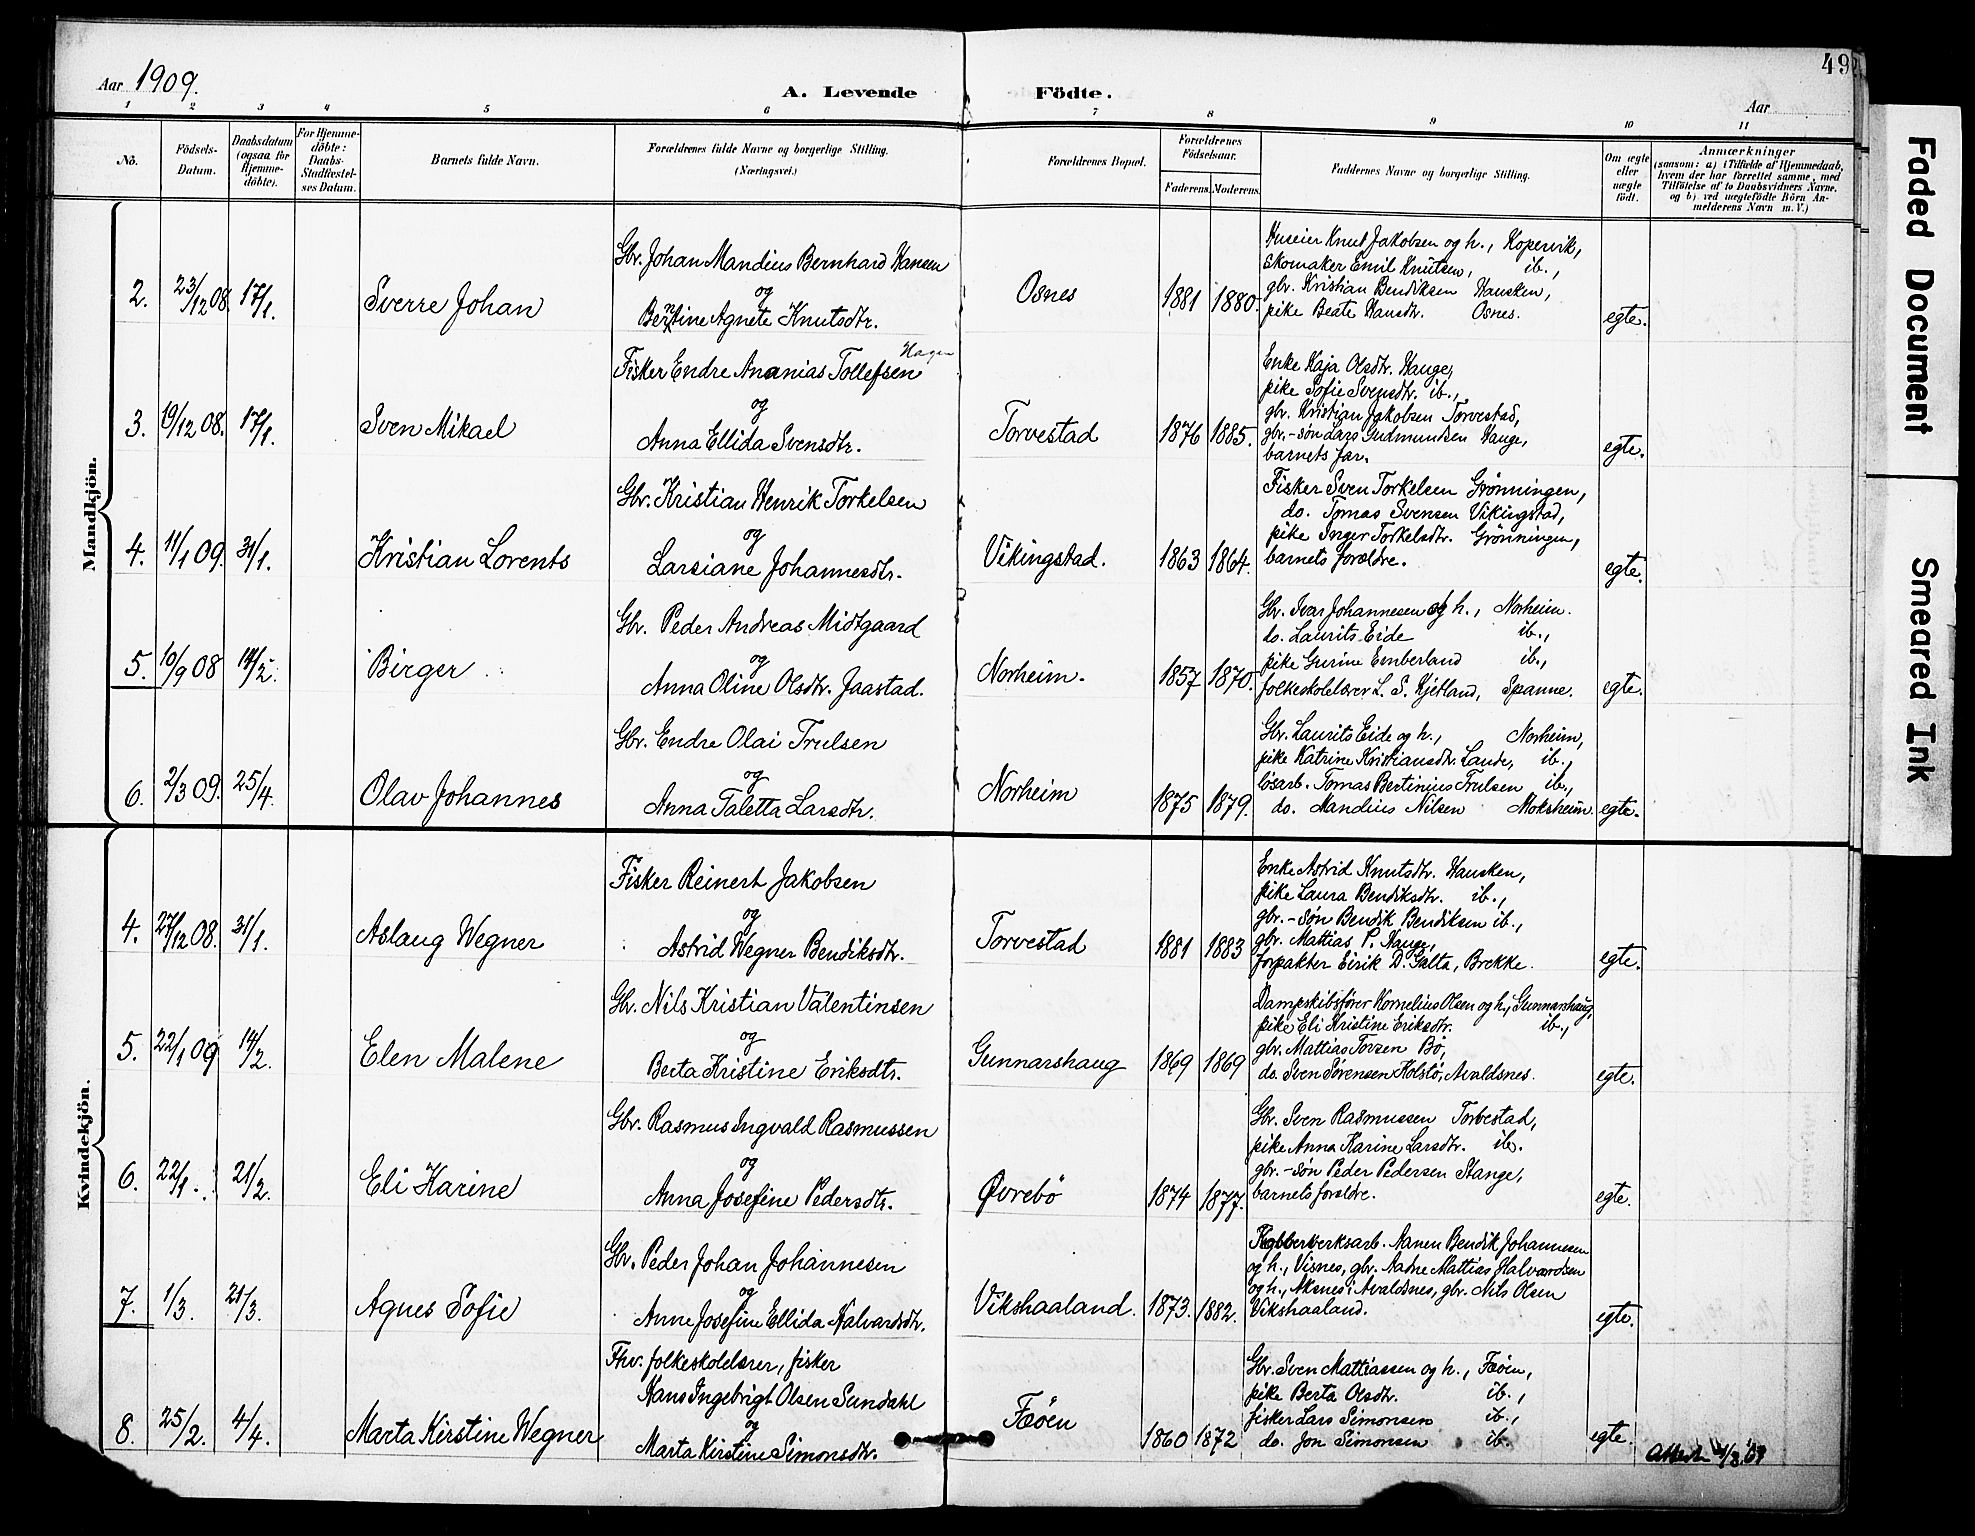 49
Aar 1909.
A. Levende Födte.
Aar
1 2 3 4 5 6 7 8 9 10 11
Nö.
Födsels-
Datum.
Daabsdatum
(ogsaa for
Hjemme-
döbte).
For Hjemme-
döbte:
Daabs-
Stadfæstel-
ses Datum.
Barnets fulde Navn.
Forældrenes fulde Navne og borgerlige Stilling.
(Næringsvei.)
Forældrenes Bopæl.
Forældrenes
Födselsaar.
Faderens.
Moderens.
Faddernes Navne og borgerlige Stilling.
Om ægte
eller
uægte
födt.
Anmærkninger
(saasom: a) i Tilfælde af Hjemmedaab,
hvem der har forrettet samme, med
Tilföielse af to Daabsvidners Navne.
og b) ved uægtefödte Börn An-
melderens Navn m. V.)
Mandkjön.
2. 23/12 08. 17/1. Sverre Johan
Gbr. Johan Mandius Bernhard Hansen
og
Berntine Agnete Knutsdtr.
Osnes 1881 1880.
Huseier Knut Jakobsen og h., Kopervik,
skomaker Emil Knutsen, ib.,
gbr. Kristian Bendiksen Hausken,
pike Beate Hansdtr. Osnes.
egte.
3. 19/12 08. 17/1. Sven Mikael
Hagen
Fisker Endre Ananias Tollefsen
og
Anna Ellida Svensdtr.
Torvestad 1876 1885.
Enke Kaja Olsdtr. Hauge,
pike Sofie Svensdtr. ib.,
gbr. Kristian Jakobsen Torvestad,
gbr.-søn Lars Gudmundsen Hauge,
barnets far.
egte.
4. 11/1 09. 31/1. Kristian Lorents
Gbr. Kristian Henrik Torkelsen
og
Larsiane Johannesdtr.
Vikingstad. 1863 1864.
Fisker Sven Torkelsen Grønningen,
do. Tomas Svensen Vikingstad,
pike Inger Torkelsdtr. Grønningen,
barnets forældre.
egte.
5. 10/9 08 14/2. Birger
Gbr. Peder Andreas Midtgaard
og
Anna Oline Olsdtr. Jaastad.
Norheim. 1857 1870.
Gbr. Ivar Johannesen og h., Norheim.
do. Laurits Eide ib.,
pike Gurine Emberland ib.,
folkeskolelærer L. S. Kjetland, Spanne.
egte.
6. 2/3 09. 25/4. Olav Johannes
Gbr. Endre Olai Trulsen
og
Anna Taletta Larsdtr.
Norheim 1875 1879.
Gbr. Laurits Eide og h., Norheim,
pike Katrine Kristiansdtr. Lande, ib.,
løsarb. Tomas Bertinius Trulsen ib.,
do. Mandius Nilsen Moksheim.
egte.
Kvindekjön.
4. 27/12 08. 31/1. Aslaug Wegner
Fisker Reinert Jakobsen
og
Astrid Wegner Bendiksdtr.
Torvestad 1881 1883
Enke Astrid Knutsdtr. Hausken,
pike Laura Bendiksdtr. ib.,
gbr.-søn Bendik Bendiksen ib.,
gbr. Mattias P. Hauge,
forpakter Eirik D. Galta, Brekke.
egte.
5. 22/1 09 14/2. Elen Malene
Gbr. Nils Kristian Valentinsen
og
Berta Kristine Eriksdtr.
Gunnarshaug 1869 1869
Dampskibsfører Kornelius Olsen og h., Gunnarshaug,
pike Eli Kristine Eriksdtr. ib.,
gbr. Mattias Torzen Bø,
do. Sven Sørensen Kolstø, Avaldsnes.
egte.
6. 22/1. 21/2. Eli Karine
Gbr. Rasmus Ingvald Rasmussen
og
Anna Josefine Pedersdtr.
Øvrebø 1874 1877.
Gbr. Sven Rasmussen Torvestad,
pike Anna Karine Larsdtr. ib.
gbr.-søn Peder Pedersen Stange,
barnets forældre.
egte.
7. 1/3. 21/3. Agnes Sofie
Gbr. Peder Johan Johannesen
og
Anne Josefine Ellida Halvardsdtr.
Vikshaaland. 1873. 1882.
Kobberverksarb. Aanen Bendik Johannesen
og h., Visnes, gbr. Aadne Mattias Halvardsen
og h., Aksnes i Avaldsnes, gbr. Nils Olsen
Vikshaaland.
egte.
8. 25/2. 4/4. Marta Kirstine Wegner
Fhv. folkeskolelærer, fisker
Hans Ingebrigt Olsen Sundahl
og
Marta Kirstine Simonsdtr.
Fæøen 1860 1872
Gbr. Sven Mattiassen og h., Fæøen,
pike Berta Olsdtr. ib.,
fisker Lars Simonsen ib.,
do. Jon Simonsen ib.
egte.
Faded Document
Smeared Ink